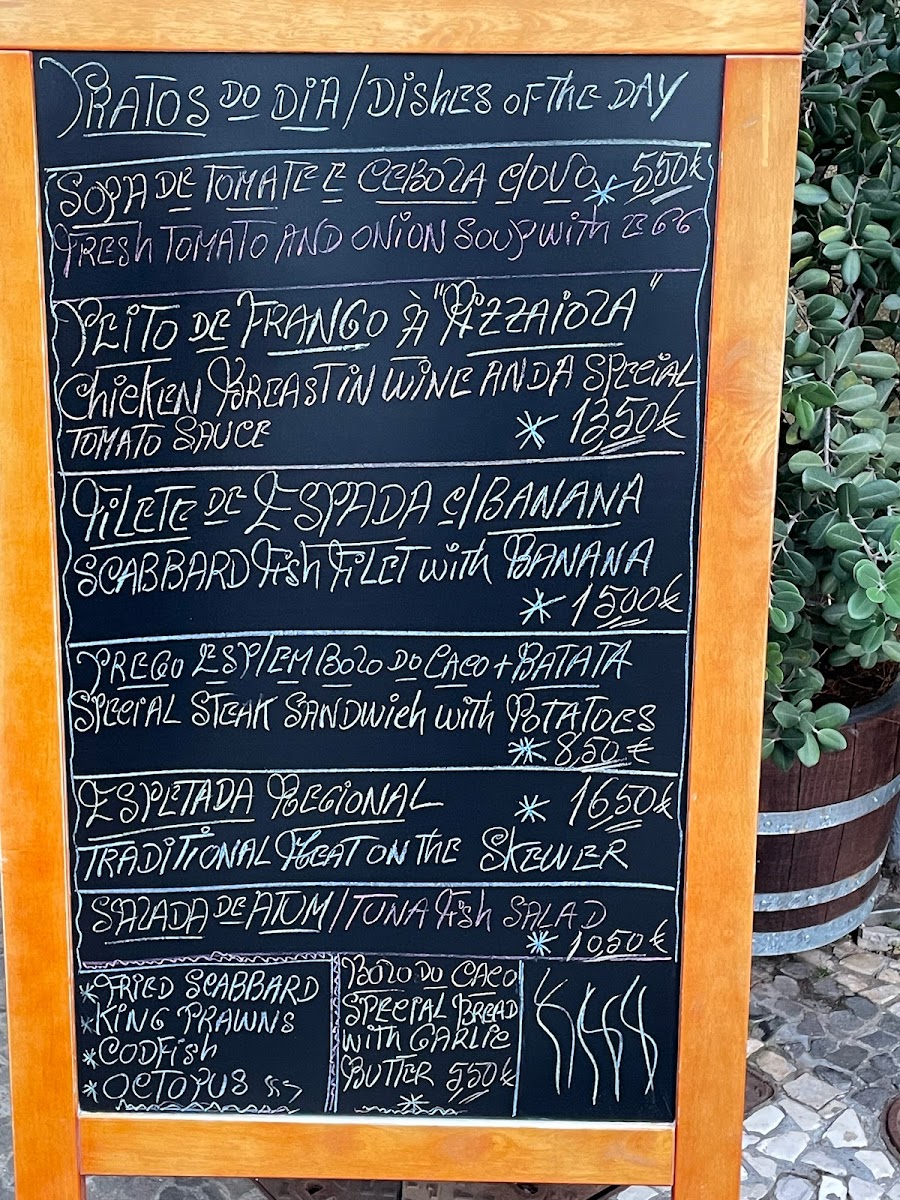 PRATOS DO DIA/DISHES OF THE DAY
SOPA DE TOMATE E CEBOLA C/OVO * 550€
FRESH TOMATO AND ONION SOUP WITH EGG
PEITO DE FRANGO À "PIZZAIOLA"
CHICKEN BREAST IN WINE AND A SPECIAL
TOMATO SAUCE * 13,50€
FILETE DE ESPADA C/BANANA
SCABBARD FISH FILET WITH BANANA
* 1500€
PREGO ESP/EM BOLO DO CACO + BATATA
SPECIAL STEAK SANDWICH WITH POTATOES
* 8,50 €
ESPETADA REGIONAL * 1650€
TRADITIONAL MEAT ON THE SKEWER
SALADA DE ATUM/TUNA FISH SALAD
* 1050€
*FRIED SCABBARD
*KING PRAWNS
*CODFISH
*OCTOPUS
BOLO DO CACO
SPECIAL BREAD
WITH GARLIC
BUTTER 5,50€
*